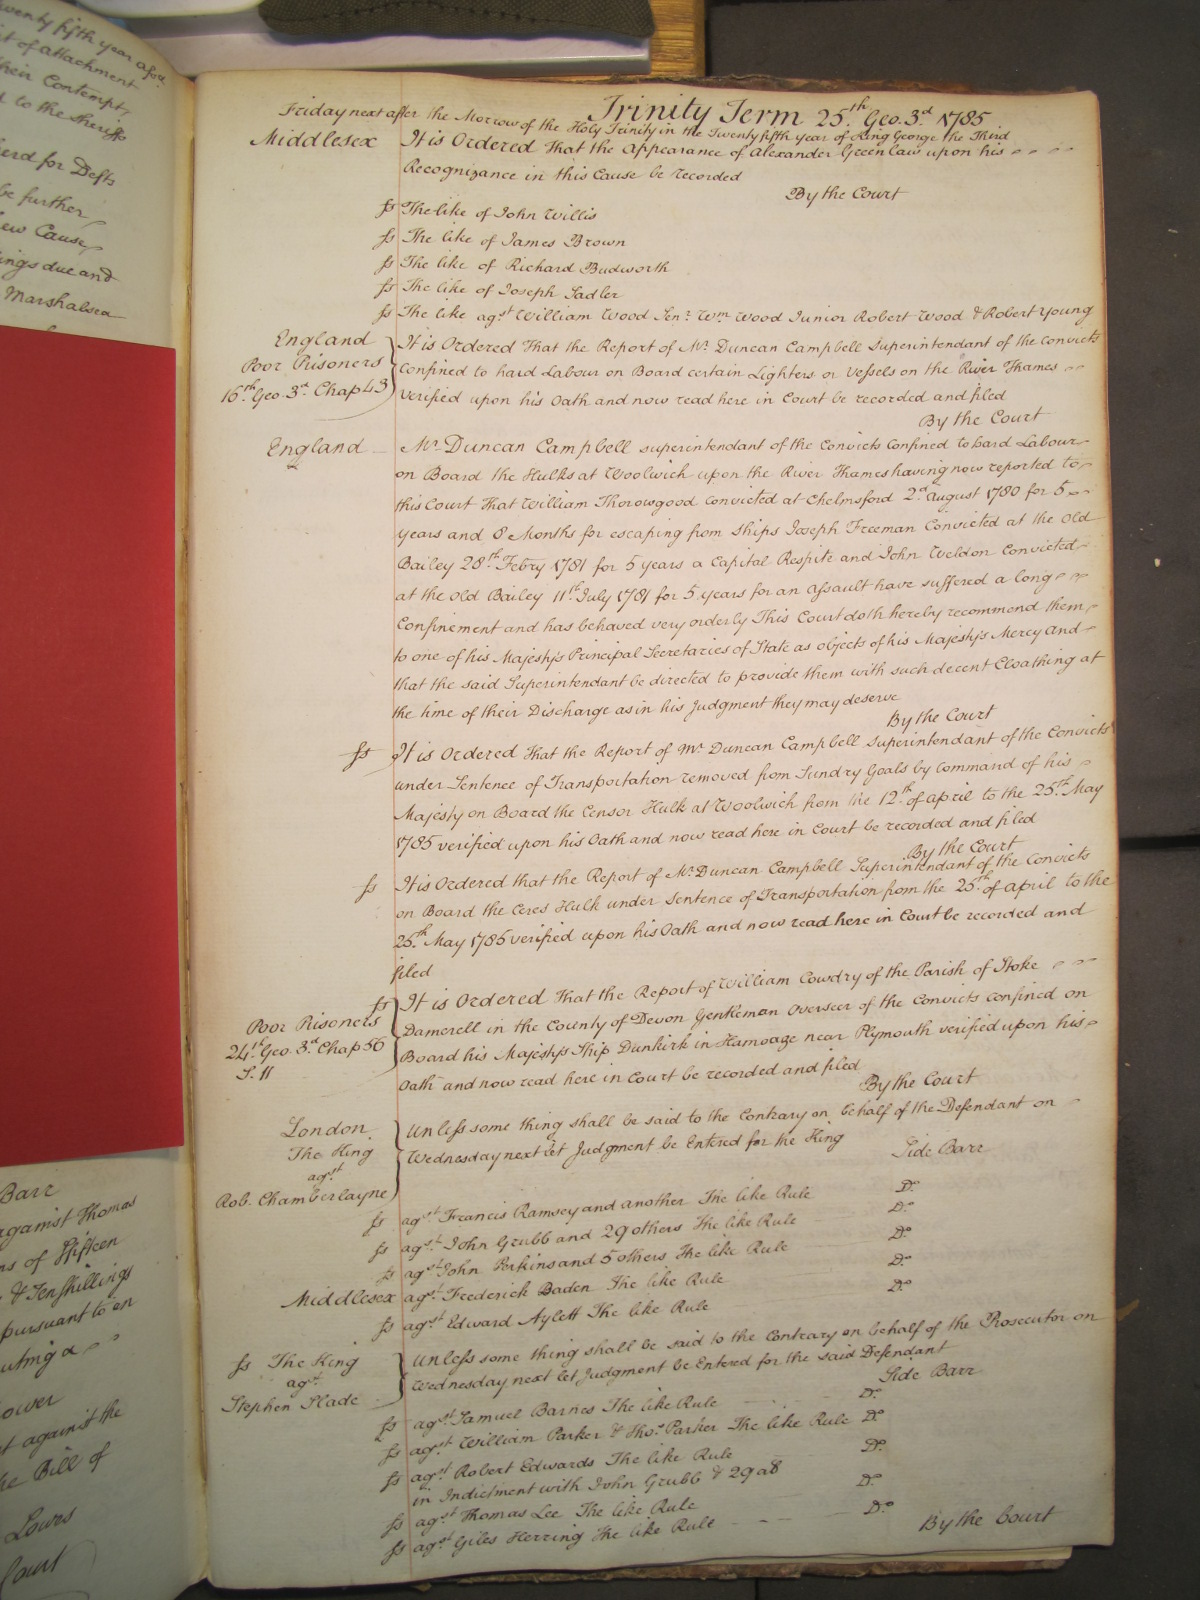 wenty fifth year afoa
it of attachment
heir Contempt,
d to the Sheriffs
erd for Defts
be further
ew Cause
ings due and
Marshalsea
Trinity Term 25.th Geo. 3.d 1785
Friday next after the Morrow of the Holy Trinity in the Twenty fifth year of King George the Third
Middlesex It is Ordered That the Appearance of Alexander Greenlaw upon his
Recognizance in this Cause be recorded
By the Court
ss The like of John Willis
ss The like of James Brown
ss The like of Richard Budworth
ss The like of Joseph Sadler
ss The like agst William Wood Senr Wm Wood Junior Robert Wood & Robert Young
England
Poor Prisoners
16.th Geo. 3.d Chap 43
It is Ordered That the Report of Mr Duncan Campbell Superintendant of the Convicts
confined to hard Labour on Board certain Lighters or Vessels on the River Thames
verified upon his Oath and now read here in Court be recorded and filed
By the Court
England Mr Duncan Campbell superintendant of the Convicts Confined to hard Labour
on Board the Hulks at Woolwich upon the River Thames having now reported to
this Court That William Thorowgood convicted at Chelmsford 2.d August 1780 for 5
years and 8 Months for escaping from Ships Joseph Freeman Convicted at the Old
Bailey 28th Febry 1781 for 5 years a Capital Respite and John Weldon Convicted
at the Old Bailey 11th July 1781 for 5 years for an Assault have suffered a long
Confinement and has behaved very orderly This Court doth hereby recommend them
to one of his Majesty's Principal Secretaries of State as objects of his Majesty's Mercy And
that the said Superintendant be directed to provide them with such decent Cloathing at
the time of their Discharge as in his Judgment they may deserve
By the Court
ss It is Ordered That the Report of Mr Duncan Campbell Superintendant of the Convicts
under Sentence of Transportation removed from Sundry Goals by Command of his
Majesty on Board the Censor Hulk at Woolwich from the 12.th of April to the 25.th May
1785 verified upon his Oath and now read here in Court be recorded and filed
By the Court
ss It is Ordered that the Report of Mr Duncan Campbell Superintendant of the Convicts
on Board the Ceres Hulk under Sentence of Transportation from the 25.th of April to the
25.th May 1785 verified upon his Oath and now read here in Court be recorded and
filed
ss
Poor Prisoners
24.th Geo. 3.d Chap 56
S. 11
It is Ordered That the Report of William Cowdry of the Parish of Stoke
Damerell in the County of Devon Gentleman Overseer of the Convicts confined on
Board his Majesty's Ship Dunkirk in Hamoaze near Plymouth verified upon his
Oath and now read here in Court be recorded and filed
By the Court
London
The King
agst
Rob. Chamberlayne
Unless some thing shall be said to the Contrary on behalf of the Defendant on
Wednesday next let Judgment be Entered for the King
Side Barr
ss agst Francis Ramsey and another The like Rule Do
ss agst John Grubb and 29 others The like Rule Do
ss agst John Perkins and 5 others The like Rule Do
Middlesex agst Frederick Baden The like Rule Do
ss agst Edward Aylett The like Rule Do
ss The King
agst
Stephen Slade
Unless some thing shall be said to the Contrary on behalf of the Prosecutor on
Wednesday next let Judgment be Entered for the said Defendant
Side Barr
ss agst Samuel Barnes The like Rule Do
ss agst William Parker & Thos Parker The like Rule Do
ss agst Robert Edwards The like Rule Do
in Indictment with John Grubb & 29 as
ss agst Thomas Lee The like Rule Do
ss agst Giles Herring The like Rule Do
By the Court
Barr
against Thomas
ns of Fifteen
& Ten Shillings
pursuant to an
uting a
ower
t against the
he Bill of
Lowes
Court